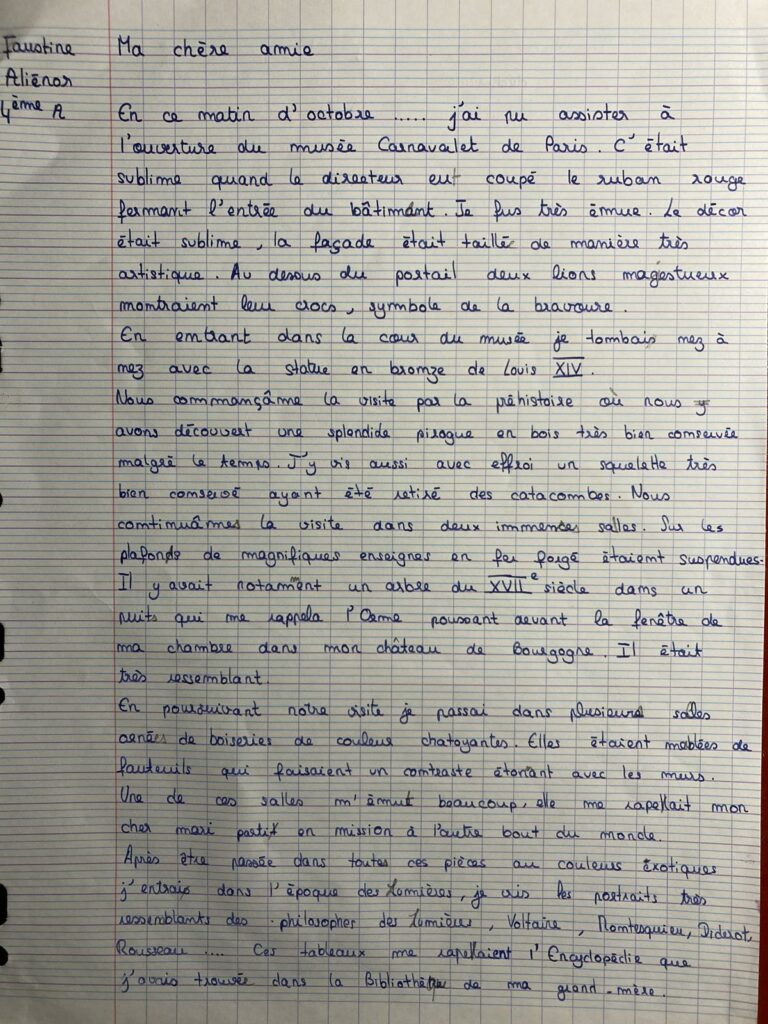 Faustine
Aliénor
4ème A
Ma chère amie
En ce matin d'octobre ..... j'ai pu assister à
l'ouverture du musée Carnavalet de Paris. C'était
sublime quand le directeur eut coupé le ruban rouge
fermant l'entrée du bâtimant. Je fus très émue. Le décor
était sublime, la façade était taillé de manière très
artistique. Au dessus du portail deux lions magestueux
montraient leur crocs, symbole de la bravoure.
En entrant dans la cour du musée je tombais nez à
nez avec la statue en bronze de Louis XIV.
Nous commançâme la visite par la préhistoire où nous y
avons découvert une splendide pirogue en bois très bien conservée
malgré le temps. J'y vis aussi avec effroi un squelette très
bien conservé ayant été retiré des catacombes. Nous
continuâmes la visite dans deux immences salles. Sur les
plafonds de magnifiques enseignes en fer forgé étaient suspendues.
Il y avait notament un arbre du XVIIe siècle dans un
puits qui me rappela l'Orme poussant devant la fenêtre de
ma chambre dans mon château de Bourgogne. Il était
très ressemblant.
En poursuivant notre visite je passai dans plusieurs salles
ornées de boiseries de couleur chatoyantes. Elles étaient mablées de
fauteuils qui faisaient un contraste étonant avec les murs.
Une de ces salles m'émut beaucoup, elle me rapellait mon
cher mari partit en mission à l'autre bout du monde.
Après être passée dans toutes ces pièces au couleurs éxotiques
j'entrais dans l'époque des Lumières, je vis les portraits très
ressemblants des philosophes des Lumières, Voltaire, Montesquieu, Diderot,
Rousseau .... Ces tableaux me rapellaient l'Encyclopédie que
j'avais trouvée dans la Bibliothèque de ma grand-mère.